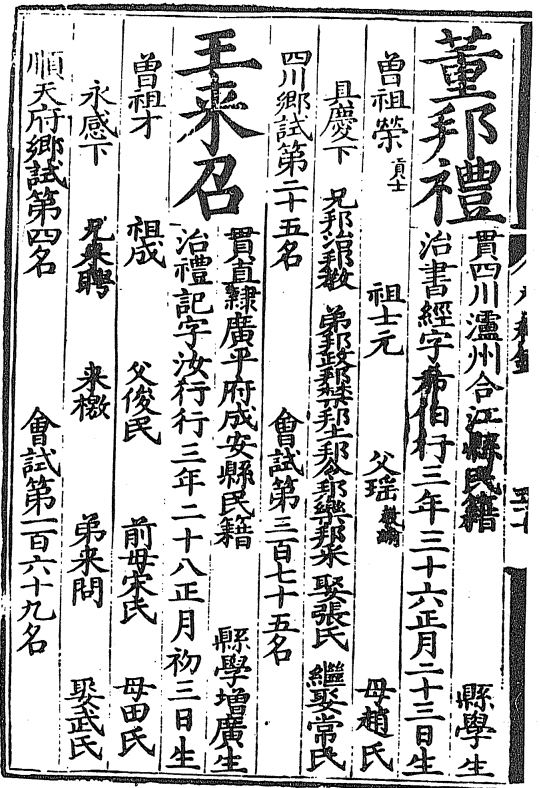 董邦禮
貫四川瀘州合江縣民籍 縣學生
治書經字希伯行三年三十六正月二十三日生
曾祖榮貢士 祖士元 父瑤教諭 母趙氏
具慶下 兄邦治邦教 弟邦政邦禁邦土邦邦樂邦采 娶張氏 繼娶常氏
四川鄉試第二十五名 會試第三百七十五名
王來召
貫直隸廣平府成安縣民籍 縣學增廣生
治禮記字汝行行三年二十八正月初三日生
曾祖才 祖成 父俊民 前母宋氏 母田氏
永感下 兄來聘 来檄 弟来問 娶武氏
順天府鄉試第四名 會試第一百六十九名